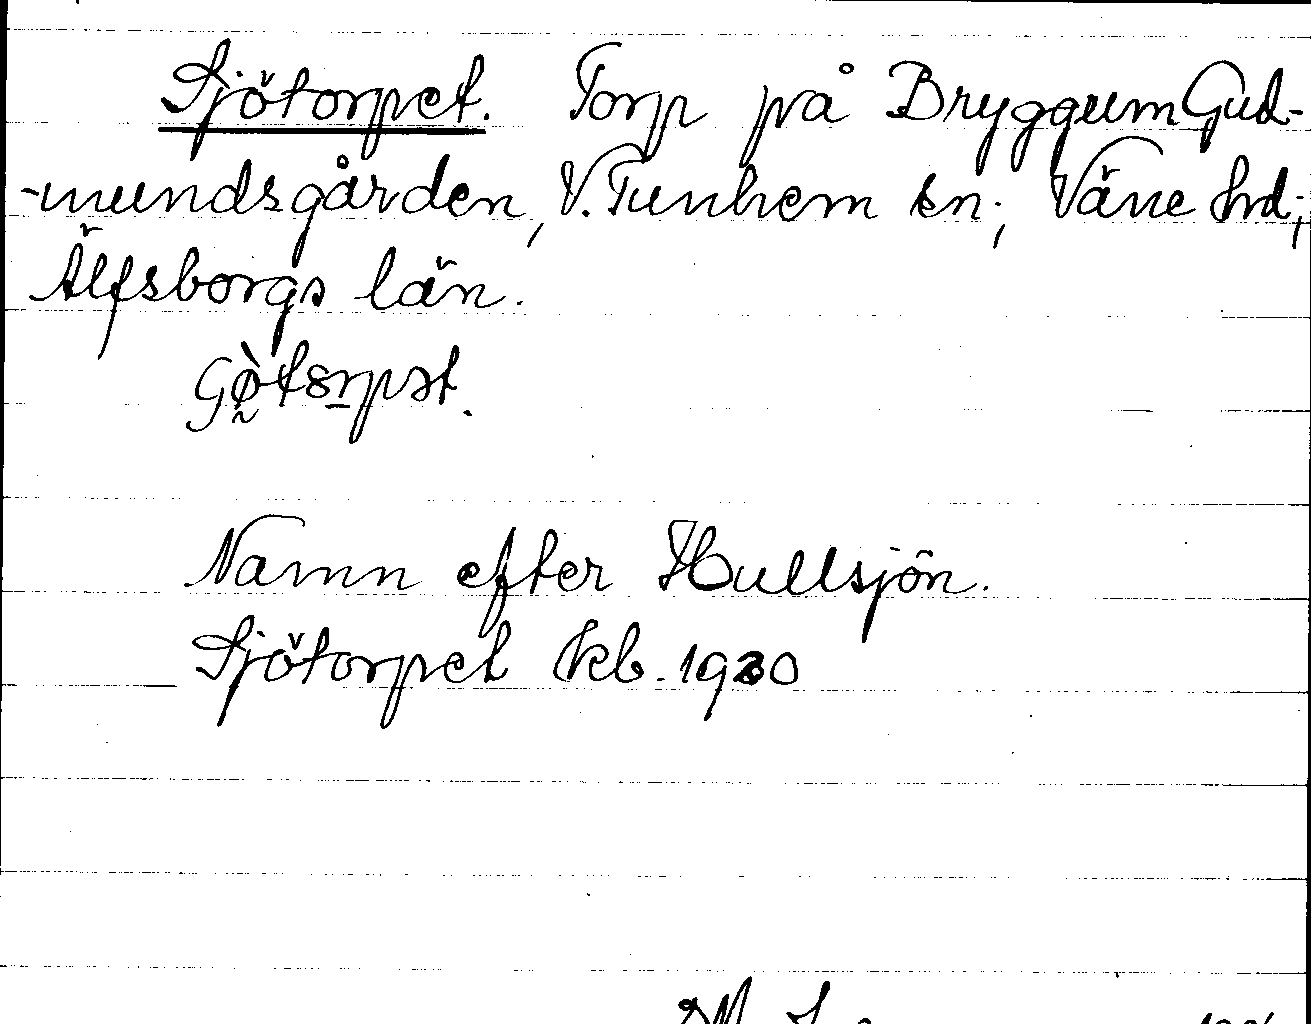 Sjötorpet. Torp på Bryggum Gud-
-mundsgården, V. Tunhem sn., Väne hd.,
Älfsborgs län.
Namn efter Hullsjön.
Sjötorpet kb. 1930